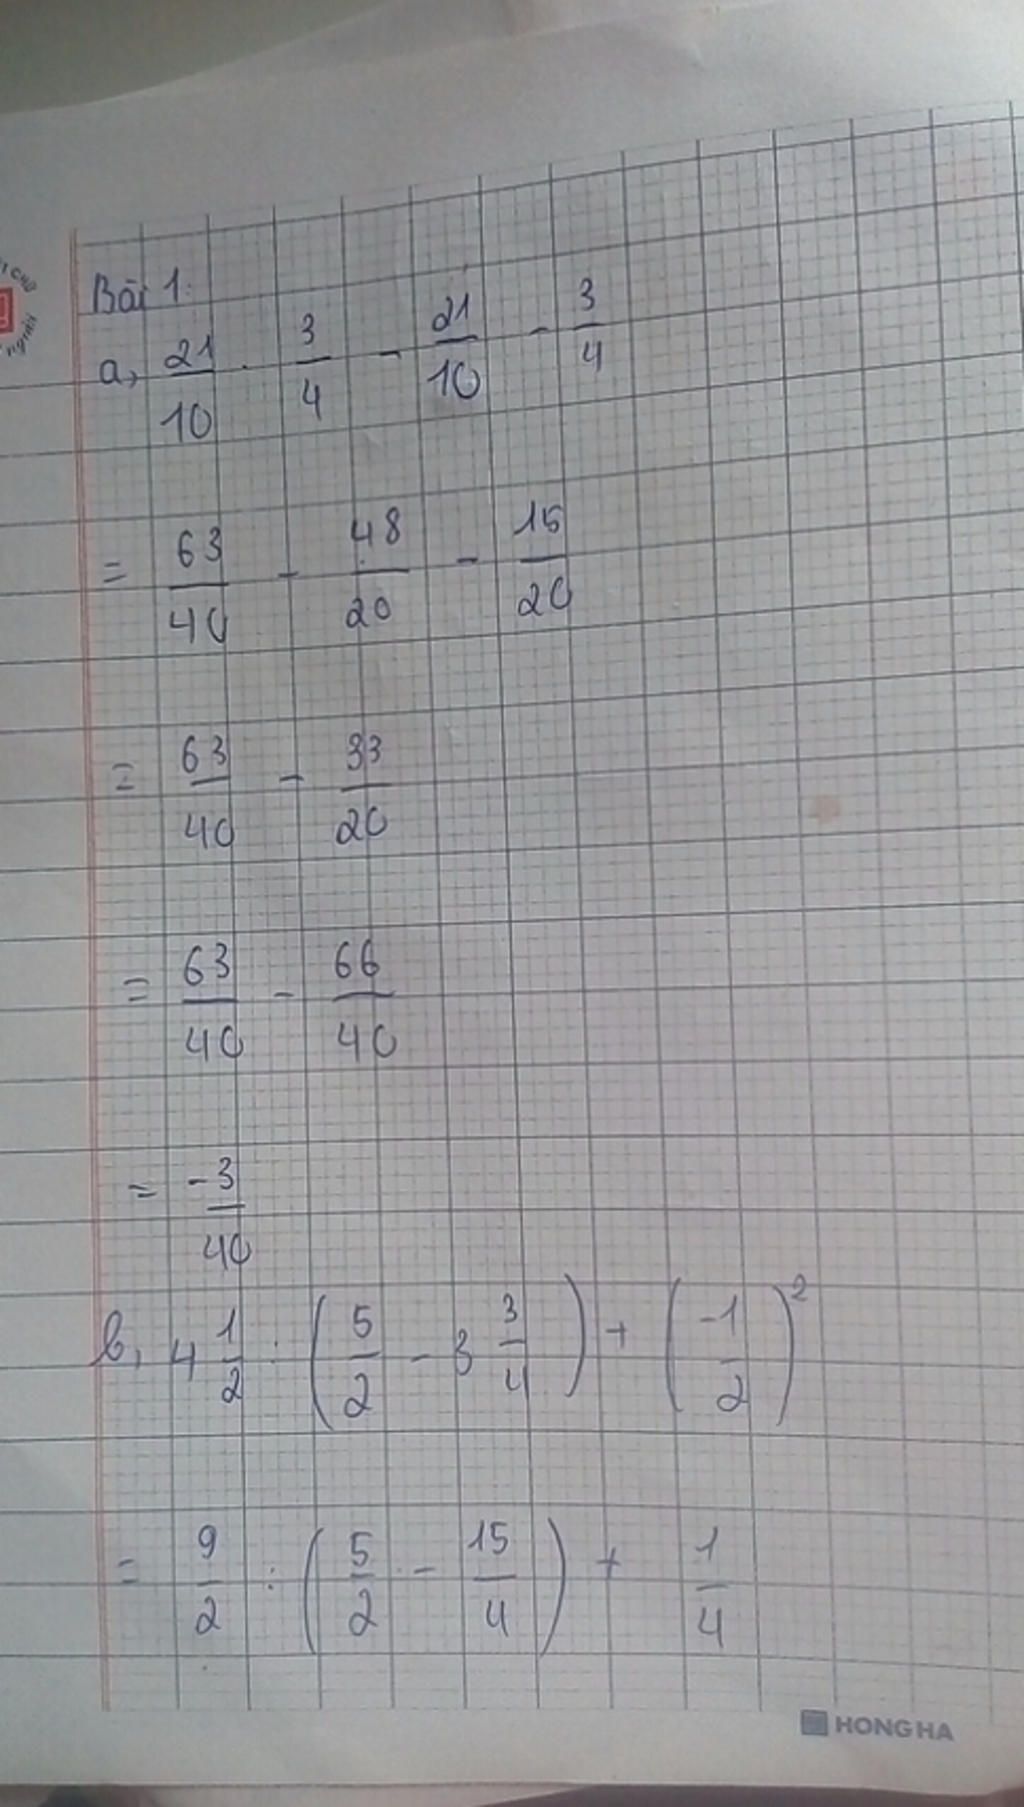 Bài 1:
a, 21/10 . 3/4 - 21/10 - 3/4
= 63/40 - 48/20 - 15/20
= 63/40 - 33/20
= 63/40 - 66/40
= -3/40
b, 4 1/2 : (5/2 - 3 3/4) + (-1/2)²
= 9/2 : (5/2 - 15/4) + 1/4
HONG HA